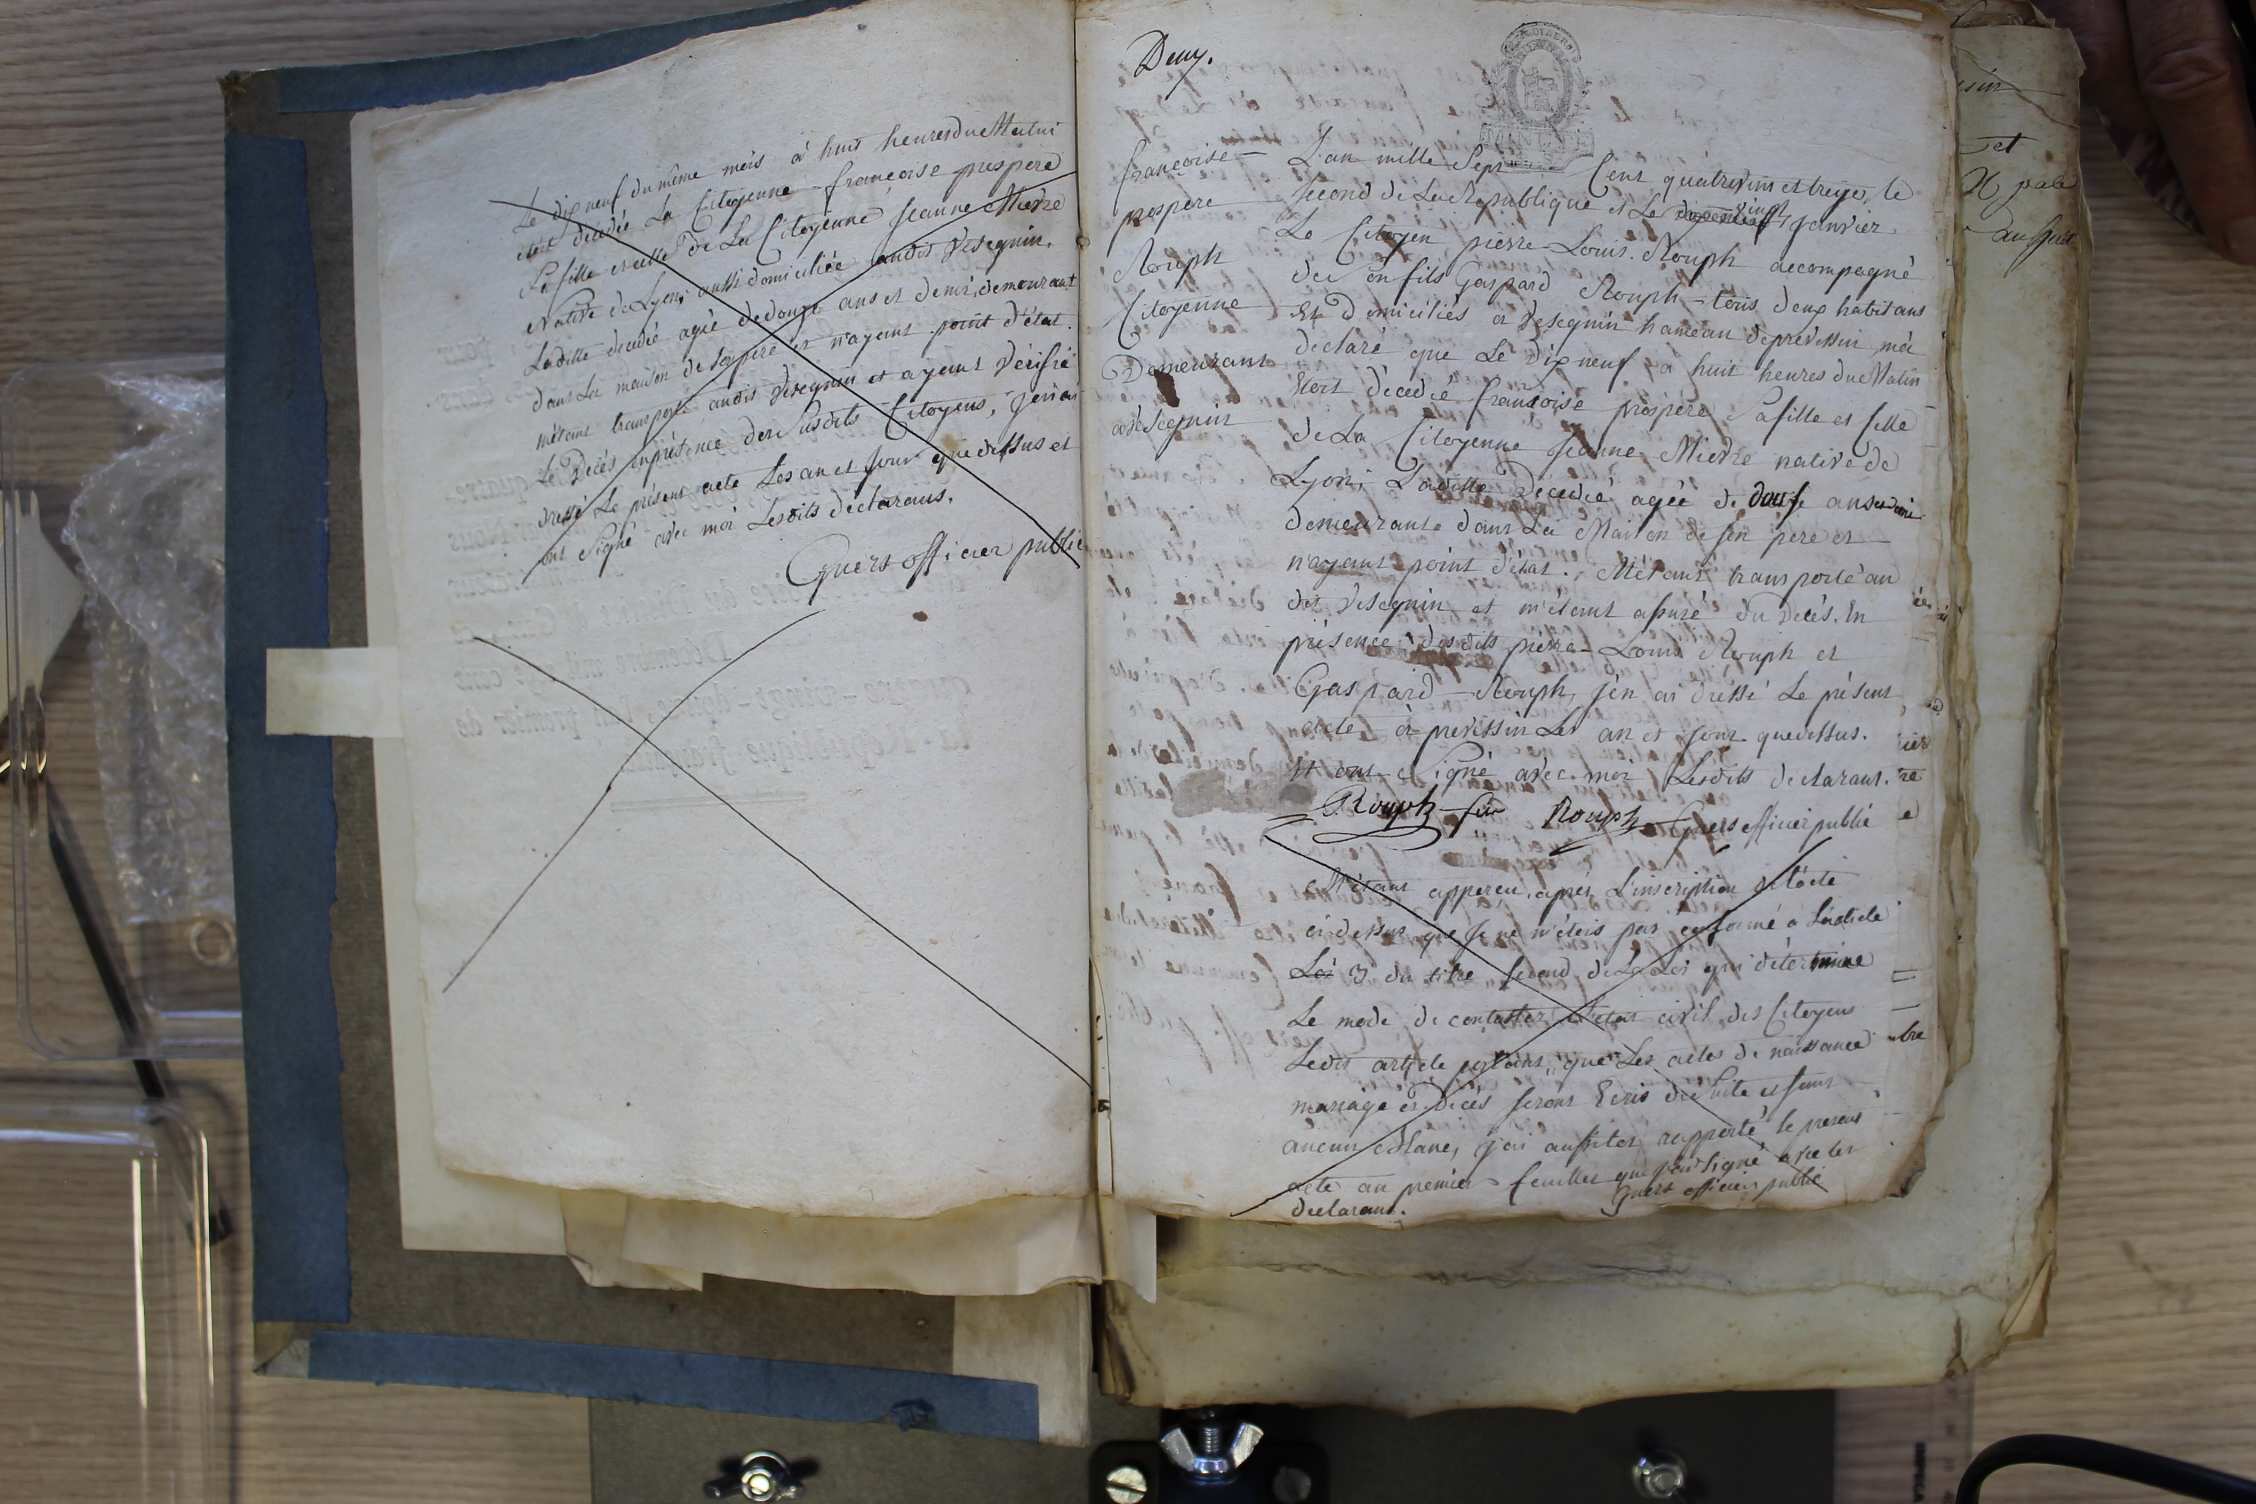 Le dix neuf du même mois à huit heures du Matin
étoit décédée La Citoyenne françoise prospere
Sa fille et celle de La Citoyenne Jeanne Mierre
Native de Lyon, aussi domiciliée audit Vesegnin,
Laditte décédée agée de douze ans et demi, demeurant
dans La maison de son pere et n'ayant point d'état.
métant transporté audit Vesegnin et ayant Vérifié
Le Décès en présence des Susdits Citoyens, J'en ai
dressé Le présent acte Les an et Jour que dessus et
ont Signé avec moi Lesdits déclarans.
Guers officier public
Deux.
françoise
prospere
Rouph
Citoyenne
Demeurant
à Vesegnin
L'an mille Sept Cent quatrevint et treize, le
second de La République et Le vingt Janvier
Le Citoyen pierre Louis Rouph accompagné
de Son fils Gaspard Rouph tous deux habitans
Et Domiciliés à Vesegnin hameau de prévessin, m'a
déclaré que Le Dix neuf à huit heures du Matin
étoit décédée françoise prospère Sa fille et fille
de La Citoyenne Jeanne Mierre native de
Lyon, Laditte Décédée agée de douse ans et demi
demeurante dans La Maison de son pere et
n'ayant point d'état. Métant transporté au
dit Vesegnin et m'étant assuré du Décès, En
présence desdits pierre Louis Rouph et
Gaspard Rouph, J'en ai dressé Le présent
acte à prevessin Les an et Jour que dessus.
Et ont Signé avec moi Lesdits déclarans.
Rouph Rouph Guers officier public
M'étant apperçu, après L'inscription de L'acte
ci dessus que Je ne m'étois pas conformé à L'article
Loi 3 du titre second de La Loi qui détermine
Le mode de contaster L'état civil des Citoyens
Ledit article portant, que Les actes de naissance
mariage et Décès seront Ecris de Suite et sans
aucun Blanc, J'ai aussitot rapporté le present
acte au premier feuillet que j'ai Signé avec les
déclarans. Guers officier public
et